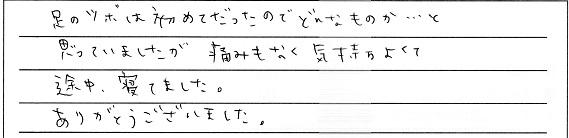 足のツボは初めてだったのでどんなものか…と
思っていましたが 痛みもなく気持ちよくて
途中、寝てました。
ありがとうございました。